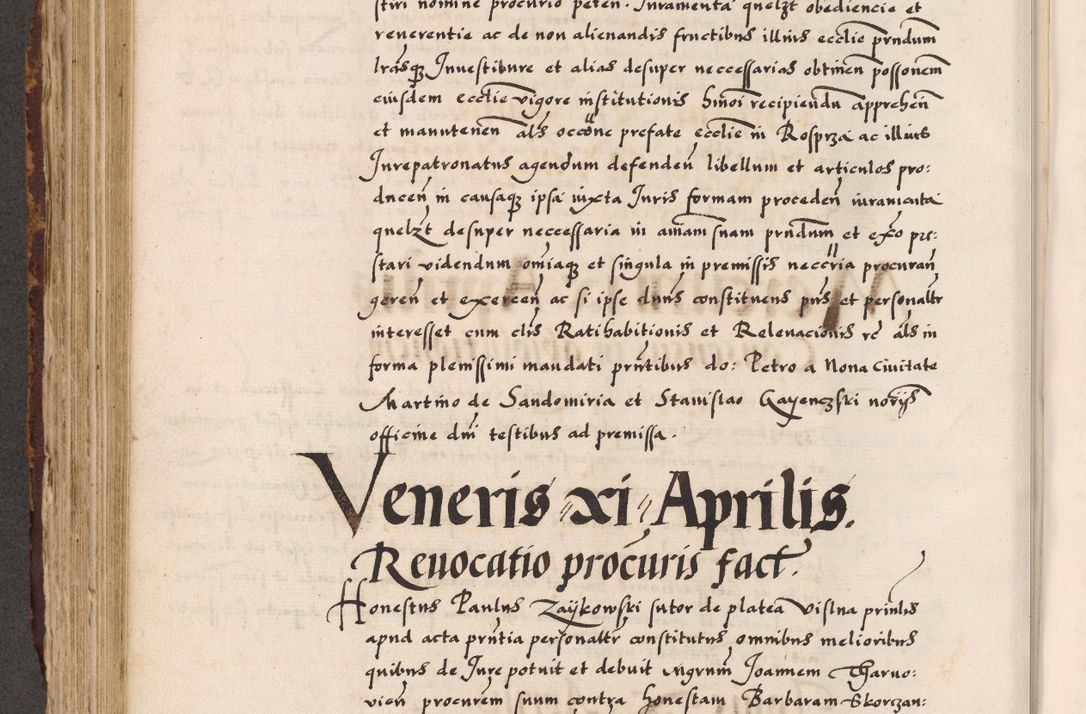 stiri nomine procurio peten. Iuramenta quelzt obediencie et
reverentie ac de non alienandis fructibus illius ecclie prndum
lrasqz Investiture et alias desuper neccessarias obtinen possonem
eiusdem ecclie vigore institutionis hmoi recipiendu apprehen
et manutenen als occone prefate ecclie in Rosprza ac illius
Iurepatronatus agendum defenden libellum et articulos pro:
ducen in causaqz ipsa iuxta Iuris formam proceden iuramenta
quelzt desuper neccessaria in aiam suam prndum et exo pre:
stari videndum omiaqz et singula in premissis neccria procuran
geren et exercen ac si ipse duns constituens pns et personaltr
interesset cum clis Ratihabitionis et Relevacionis rc als in
forma plenissimi mandati prntibus do: Petro a Nona Civitate
Martino de Sandomiria et Stanislao Gayenczski norijs
officine dni testibus ad premissa.
Veneris xi Aprilis.
Revocatio procuris fact.
Honestus Paulus Zaykowski sutor de platea Vislna prinlis
apud acta prntia personaltr constitutus omnibus melioribus
quibus de Iure potuit et debuit mgrum Joannem Tharno:
vien procurem suum contra honestam Barbaram Skorczan: